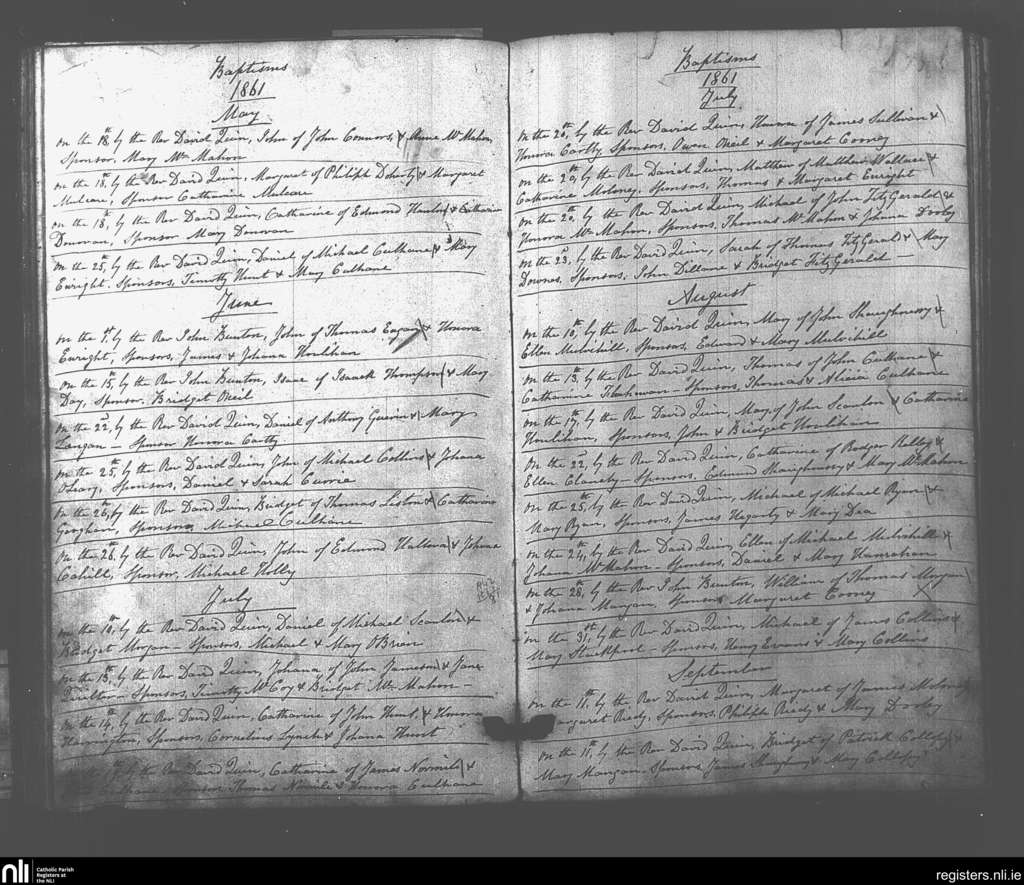 Baptisms
1861
May
on the 18th, by the Rev David Quin, John of John Connors, & Anne Mc Mahon
Sponsor, Mary Mc Mahon
on the 18th, by the Rev David Quin, Margaret of Philiph Doherty & Margaret
Mulcare, Sponsor Catharine Mulcare
on the 18th, by the Rev David Quin, Catharine of Edmond Hanlon & Catharine
Donovan, Sponsor Mary Donovan
on the 25th, by the Rev David Quin, Daniel of Michael Culhane & Mary
Enright. Sponsors, Timothy Hunt & Mary Culhane
June
on the 1st, by the Rev John Bunton, John of Thomas & Honora
Enright, Sponsors, James & Johana Houlihan
on the 15th, by the Rev John Bunton, Isaac of Isaack Thompson & Mary
Day, Sponsor, Bridget Oneil
on the 22nd, by the Rev David Quin, Daniel of Anthony Guerin & Mary
Langan – Sponsor Honora Carthy
on the 25th, by the Rev David Quin, John of Michael Collins & Johana
OLeary, Sponsors, Daniel & Sarah Currie
on the 26th, by the Rev David Quin, Bridget of Thomas Liston & Catharine
Geoghan. Sponsor Michael Culhane
on the 28th, by the Rev David Quin, John of Edmond & Johana
Cahill, Sponsor, Michael Holly
July
on the 10th, by the Rev David Quin, Daniel of Michael Scanlon &
Bridget Morgan – Sponsors, Michael & Mary OBrien
on the 13th, by the Rev David Quin, Johana of John Jameson & Jane
Quilter – Sponsors, Timothy McCoy & Bridget Mc Mahon –
on the 14th, by the Rev David Quin, Catharine of John Hunt, & Honora
Harrington, Sponsors, Cornelius Lynch & Johana Hunt
by the Rev David Quin, Catharine of James Normile &
Sponsors Thomas Normile & Honora Culhane
Baptisms
1861
July
on the 20th, by the Rev David Quin, Honora of James Sullivan &
Honora Carthy, Sponsors, Owen Oneil & Margaret Cooney
on the 20th, by the Rev David Quin, Matthew of Matthew Wallace &
Catharine Moloney, Sponsors, Thomas & Margaret Enright
on the 20th, by the Rev David Quin, Michael of John FitzGerald &
Honora Mc Mahon, Sponsors, Thomas Mc Mahon & Johana Dooley
on the 23rd, by the Rev David Quin, Sarah of Thomas FitzGerald & Mary
Downes, Sponsors, John Dillane & Bridget FitzGerald –
August
on the 10th, by the Rev David Quin, Mary of John Shaughnessy &
Ellen Mulvihill, Sponsors, Edmond & Mary Mulvihill
on the 13th, by the Rev David Quin, Thomas of John Culhane &
Catharine Sponsors, Thomas & Alicia Culhane
on the 17th, by the Rev David Quin, Mary of John Scanlon & Catharine
Houlihan, Sponsors, John & Bridget Houlihan
on the 22nd, by the Rev David Quin, Catharine of Rodger Kelly &
Ellen Clanchy – Sponsors, Edmond Shaughnessy & Mary McMahon
on the 25th, by the Rev David Quin, Michael of Michael Ryan &
Mary Ryan, Sponsors, James Hegarty & Mary Dea
on the 24th, by the Rev David Quin, Ellen of Michael Mulvihill &
Johana McMahon – Sponsors, Daniel & Mary Hanrahan
on the 28th, by the Rev John Bunton, William of Thomas Morgan
& Johana Mangan, Sponsor Margaret Cooney
on the 31st, by the Rev David Quin, Michael of James Collins &
Mary Stackpool – Sponsors, Henry Evans & Mary Collins
September
on the 11th, by the Rev David Quin, Margaret of James Moloney
Margaret Reidy, Sponsors, Philiph Reidy & Mary Dooley
on the 11th, by the Rev David Quin, Bridget of Patrick &
Mary Mangan. Sponsors, James & Mary
nli
Catholic Parish
Registers at
the NLI
registers.nli.ie